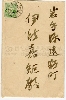 岩手縣遠野町
伊能嘉矩殿